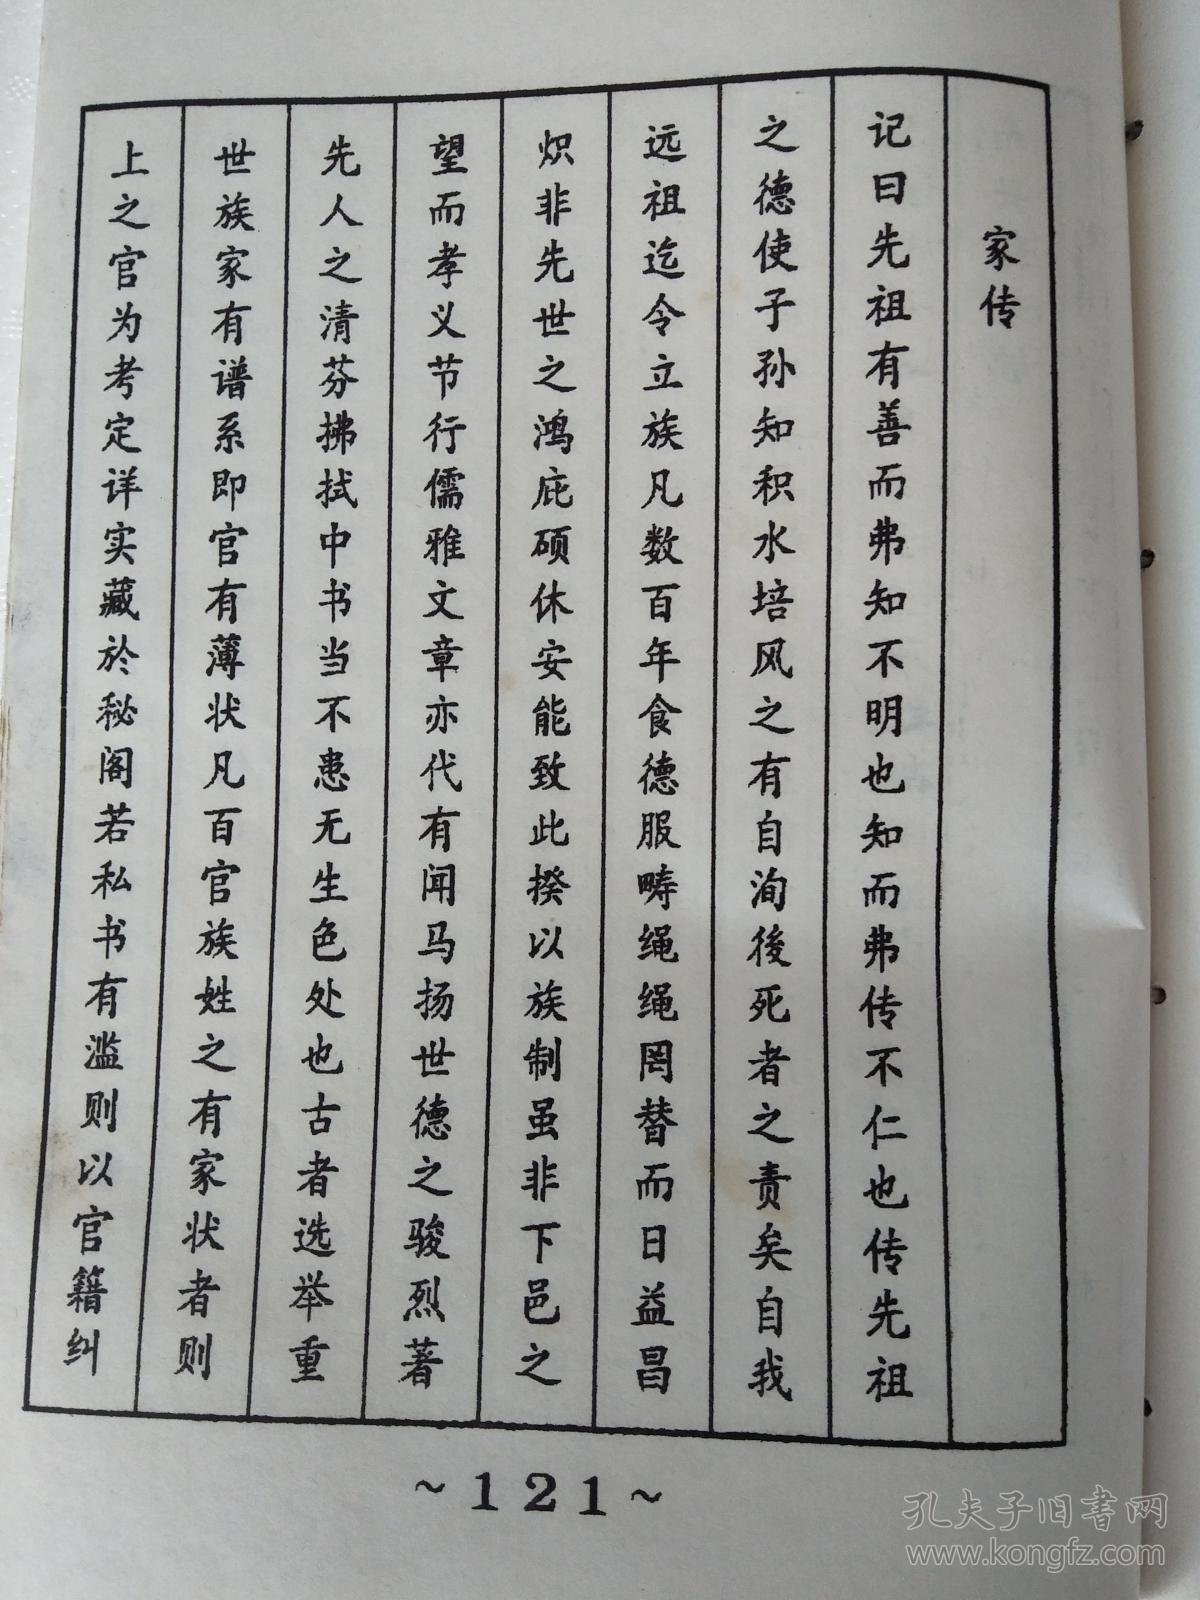 家传
记曰先祖有善而弗知不明也知而弗传不仁也传先祖
之德使子孙知积水培风之有自洵後死者之责矣自我
远祖迄令立族凡数百年食德服畴绳绳罔替而日益昌
炽非先世之鸿庇硕休安能致此揆以族制虽非下邑之
望而孝义节行儒雅文章亦代有闻马扬世德之骏烈著
先人之清芬拂拭中书当不患无生色处也古者选举重
世族家有谱系即官有薄状凡百官族姓之有家状者则
上之官为考定详实藏於秘阁若私书有滥则以官籍纠
~121~
孔夫子旧书网
www.kongfz.com